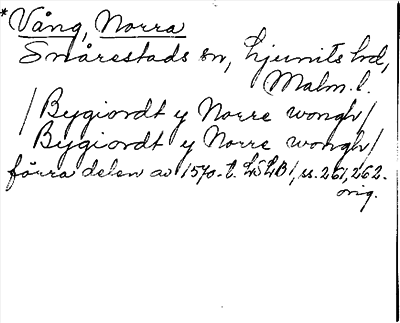 *Vång, Norra
Snårestads sn, Ljunits hd,
Malm.l.
/Bygiordt y Norre wongh/
Bygiordt y Norre wongh/
förra delen av 1570-t. LSLB1, ss. 261, 262.
orig.